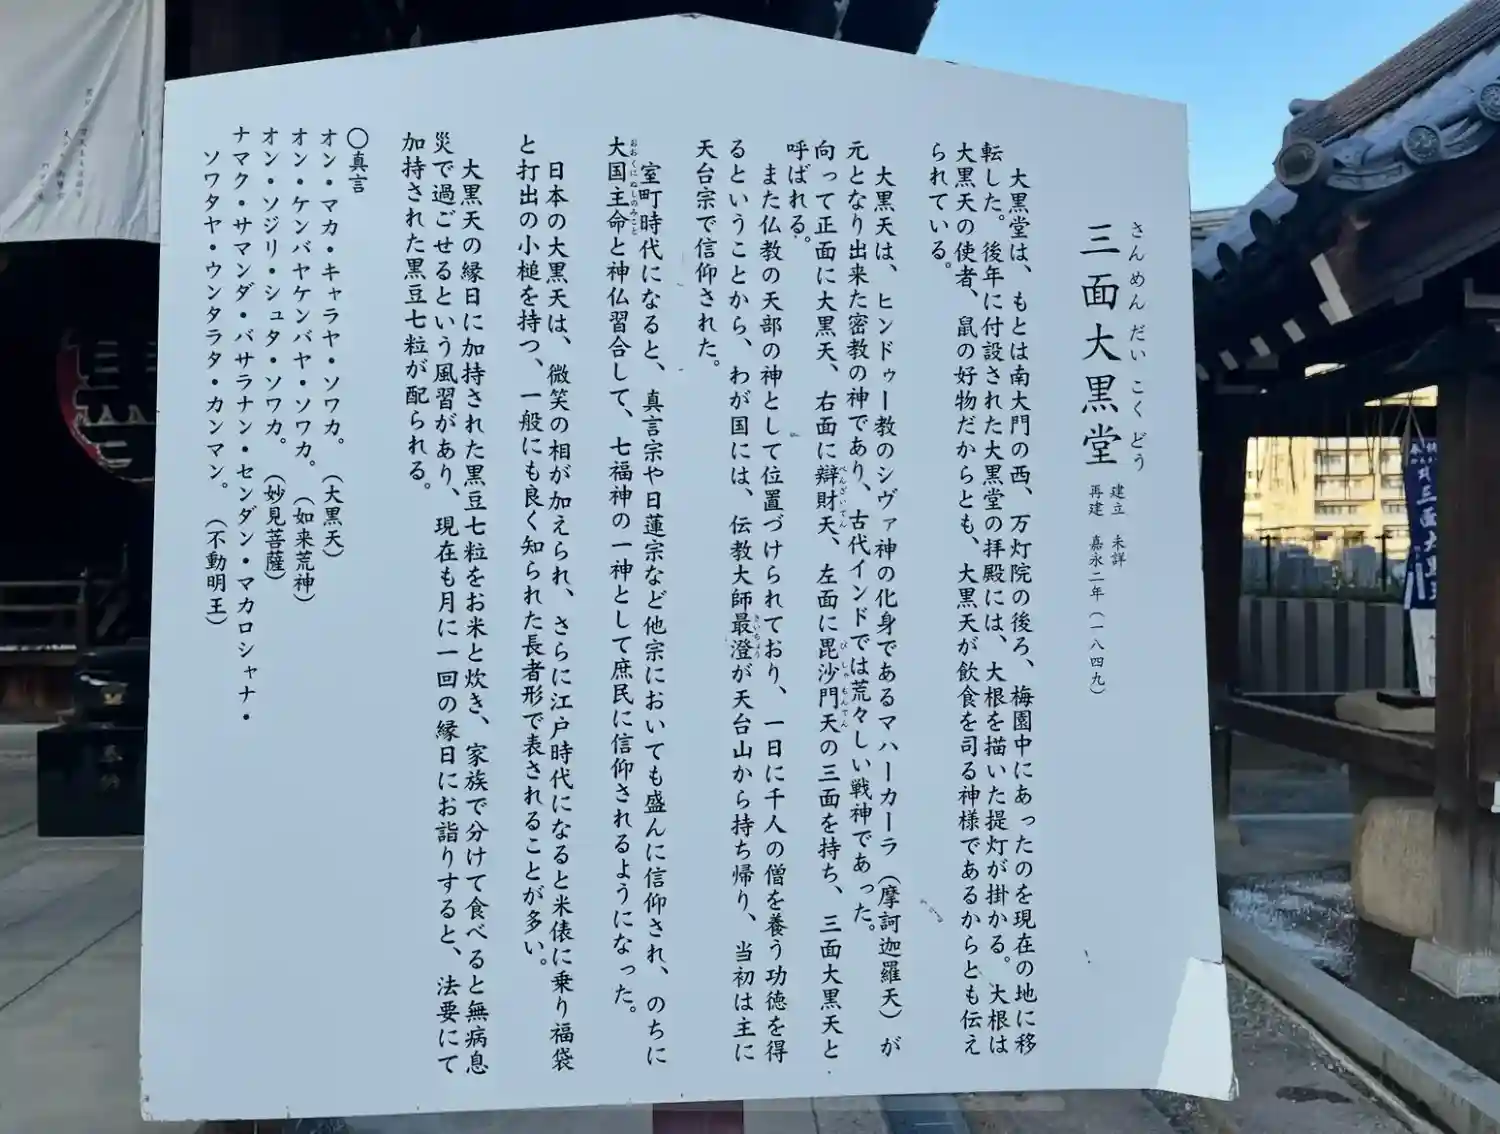 さんめんだいこくどう
三面大黒堂
建立 未詳
再建 嘉永二年(一八四九)
大黒堂は、もとは南大門の西、万灯院の後ろ、梅園中にあったのを現在の地に移
転した。後年に付設された大黒堂の拝殿には、大根を描いた提灯が掛かる。大根は
大黒天の使者、鼠の好物だからとも、大黒天が飲食を司る神様であるからとも伝え
られている。
大黒天は、ヒンドゥー教のシヴァ神の化身であるマハーカーラ(摩訶迦羅天)が
元となり出来た密教の神であり、古代インドでは荒々しい戦神であった。
向って正面に大黒天、右面に辯財天、左面に毘沙門天の三面を持ち、三面大黒天と
べんざいてん
びしゃもんてん
呼ばれる。
また仏教の天部の神として位置づけられており、一日に千人の僧を養う功徳を得
るということから、わが国には、伝教大師最澄が天台山から持ち帰り、当初は主に
さいちょう
天台宗で信仰された。
室町時代になると、真言宗や日蓮宗など他宗においても盛んに信仰され、のちに
大国主命と神仏習合して、七福神の一神として庶民に信仰されるようになった。
おおくにぬしのみこと
日本の大黒天は、微笑の相が加えられ、さらに江戸時代になると米俵に乗り福袋
と打出の小槌を持つ、一般にも良く知られた長者形で表されることが多い。
大黒天の縁日に加持された黒豆七粒をお米と炊き、家族で分けて食べると無病息
災で過ごせるという風習があり、現在も月に一回の縁日にお詣りすると、法要にて
加持された黒豆七粒が配られる。
〇真言
オン・マカ・キャラヤ・ソワカ。(大黒天)
オン・ケンバヤケンバヤ・ソワカ。(如来荒神)
オン・ソジリ・シュタ・ソワカ。(妙見菩薩)
ナマク・サマンダ・バサラナン・センダン・マカロシャナ・
ソワタヤ・ウンタラタ・カンマン。(不動明王)
三面大黒